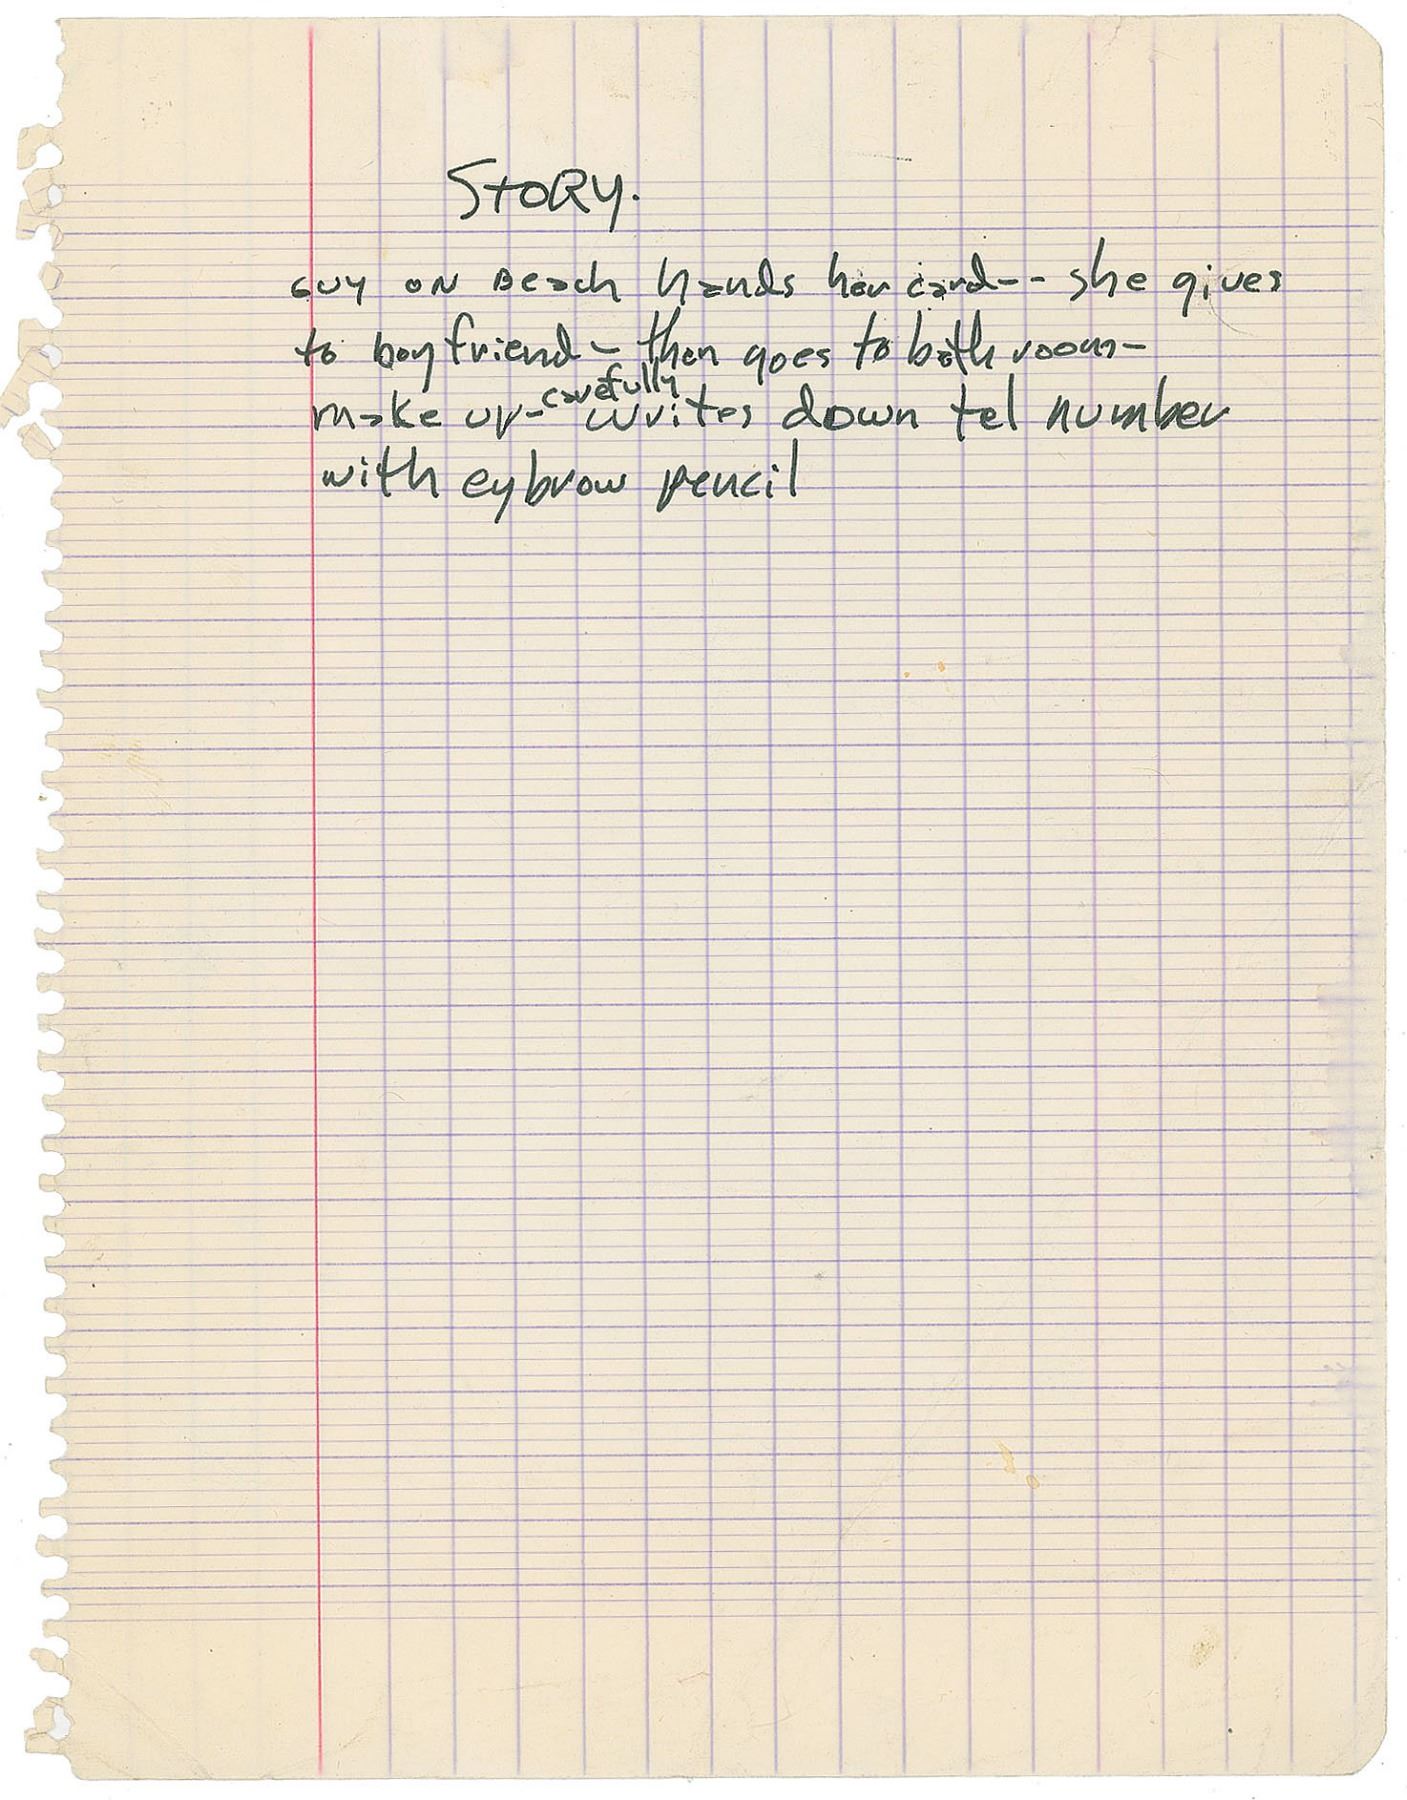 STORY.
GUY ON BEach hands her card-- she gives
to boyfriend- then goes to bathroom-
make up- carefully writes down tel number
with eybrow pencil